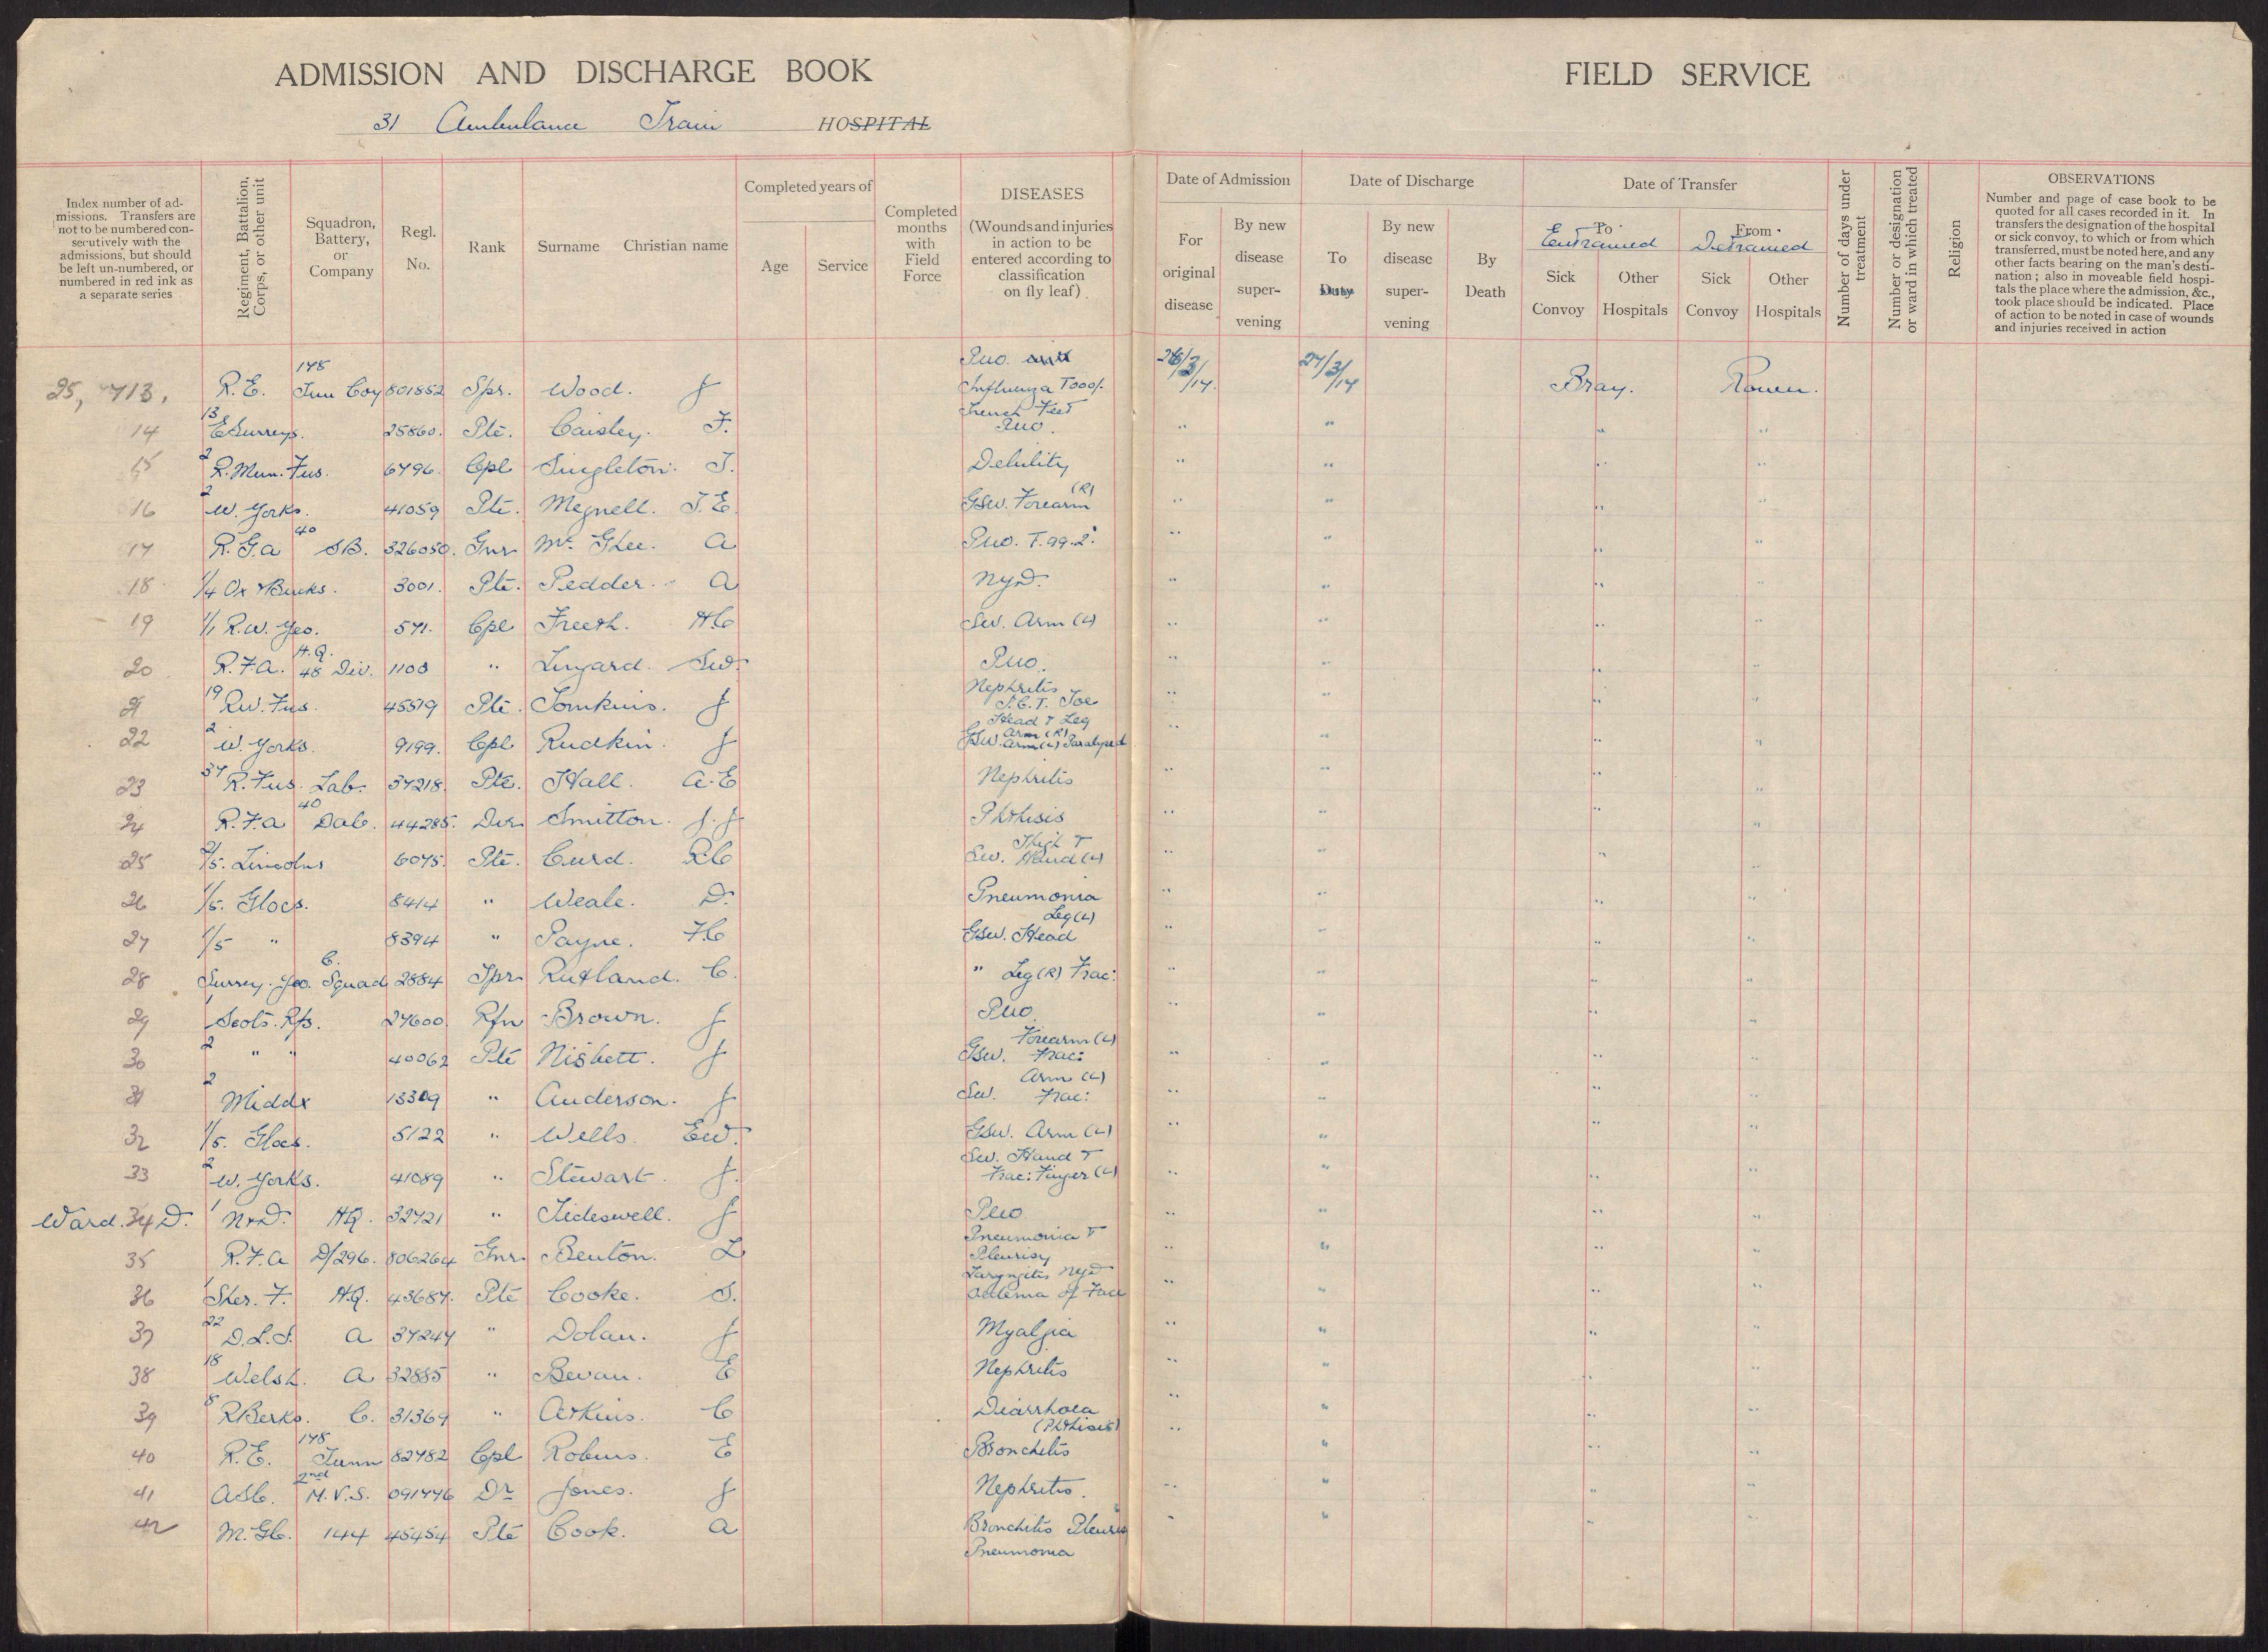 ADMISSION AND DISCHARGE BOOK
31 Ambulance Train HOSPITAL
FIELD SERVICE
Index number of admissions. Transfers are not to be numbered consecutively with the admissions, but should be left un-numbered, or numbered in red ink as a separate series
Regiment, Battalion, Corps, or other unit
Squadron, Battery, or Company
Regl. No.
Rank
Surname Christian name
Completed years of
Age
Service
Completed months with Field Force
DISEASES
(Wounds and injuries in action to be entered according to classification on fly leaf)
Date of Admission
For original disease
By new disease supervening
Date of Discharge
To Duty
By new disease supervening
By Death
Date of Transfer
To
Entrained
Sick Convoy
Other Hospitals
From
Detrained
Sick Convoy
Other Hospitals
Number of days under treatment
Number or designation or ward in which treated
Religion
OBSERVATIONS
Number and page of case book to be quoted for all cases recorded in it. In transfers the designation of the hospital or sick convoy, to which or from which transferred, must be noted here, and any other facts bearing on the man's destination; also in moveable field hospitals the place where the admission, &c., took place should be indicated. Place of action to be noted in case of wounds and injuries received in action
25,713. R.E. 178 Tun Coy 801852 Spr. Wood. J Puo. Influenza 26/3/17. 27/3/17 Bray. Rouen.
14 13 E Surreys. 25860. Pte. Caisley. F. Trench Feet Puo. " " " "
15 2 R. Mun. Fus. 6796. Cpl Singleton. J. Debility " " " "
16 2 W. Yorks. 41059 Pte. Megnell. J.E. Gsw. Forearm (R) " " " "
17 R.G.A 40 SB. 326050. Gnr Mc Ghee. A Puo. T.99.2. " " " "
18 1/4 Ox & Bucks. 3001. Pte. Pedder. A NyD. " " " "
19 1/1 R.W. Yeo. 571. Cpl Freeth. HC Sw. Arm (L) " " " "
20 R.F.A. H.Q. 48 Div. 1108 " Lingard. SW. Puo. " " " "
21 19 R.W. Fus. 45519 Pte. Tomkins. J Nephritis I.C.T. Toe " " " "
22 2 W. Yorks. 9199. Cpl Rudkin. J Gsw. Head & Leg Arm (R) Arm (L) Paralysed " " " "
23 37 R. Fus. Lab. 37218. Pte. Hall. A.E Nephritis " " " "
24 R.F.A 40 DAC. 44285. Dvr Smitton. J.J Phthisis " " " "
25 2/5. Lincolns 6075. Pte. Curd. RC Sw. Thigh & Hand (L) " " " "
26 1/5. Glocs. 8414 " Weale. D. Pneumonia " " " "
27 1/5 " 8394 " Payne. FC Gsw. Head Leg (L) " " " "
28 Surrey. Yeo. C. Squad 2884 Tpr Rutland. C. " Leg (R) Frac: " " " "
29 1 Scots. Rfs. 27600 Rfn Brown. J Puo. " " " "
30 2 " " 40062 Pte Nisbett. J Gsw. Forearm (L) Frac: " " " "
31 2 Middx 13309 " Anderson. J Sw. Arm (L) Frac: " " " "
32 1/5. Glocs. 5122 " Wells. EW. Gsw. Arm (L) " " " "
33 2 W. Yorks. 41089 " Stewart. J. Sw. Hand & Frac: Finger (L) " " " "
Ward. 34 D. 1 N&D. HQ. 32721 " Tideswell. J Puo " " " "
35 R.F.A D/296. 806264 Gnr. Benton. L Pneumonia & Pleurisy " " " "
36 1 Sher. F. H.Q. 43687. Pte Cooke. S. Laryngitis NyD Oedema of Face " " " "
37 22 D.L.I. A 37247 " Dolan. J Myalgia " " " "
38 18 Welsh. A 32885 " Bevan. E Nephritis " " " "
39 8 R Berks. C. 31369 " Atkins. C Diarrhoea " " " "
40 R.E. 178 Tunn 82782 Cpl Robins. E (Phthisis) Bronchitis " " " "
41 ASC. 2nd M.V.S. 091776 Dr Jones. J Nephritis. " " " "
42 M.GC. 144 45454 Pte Cook. A Bronchitis Pleurisy " " " "
Pneumonia